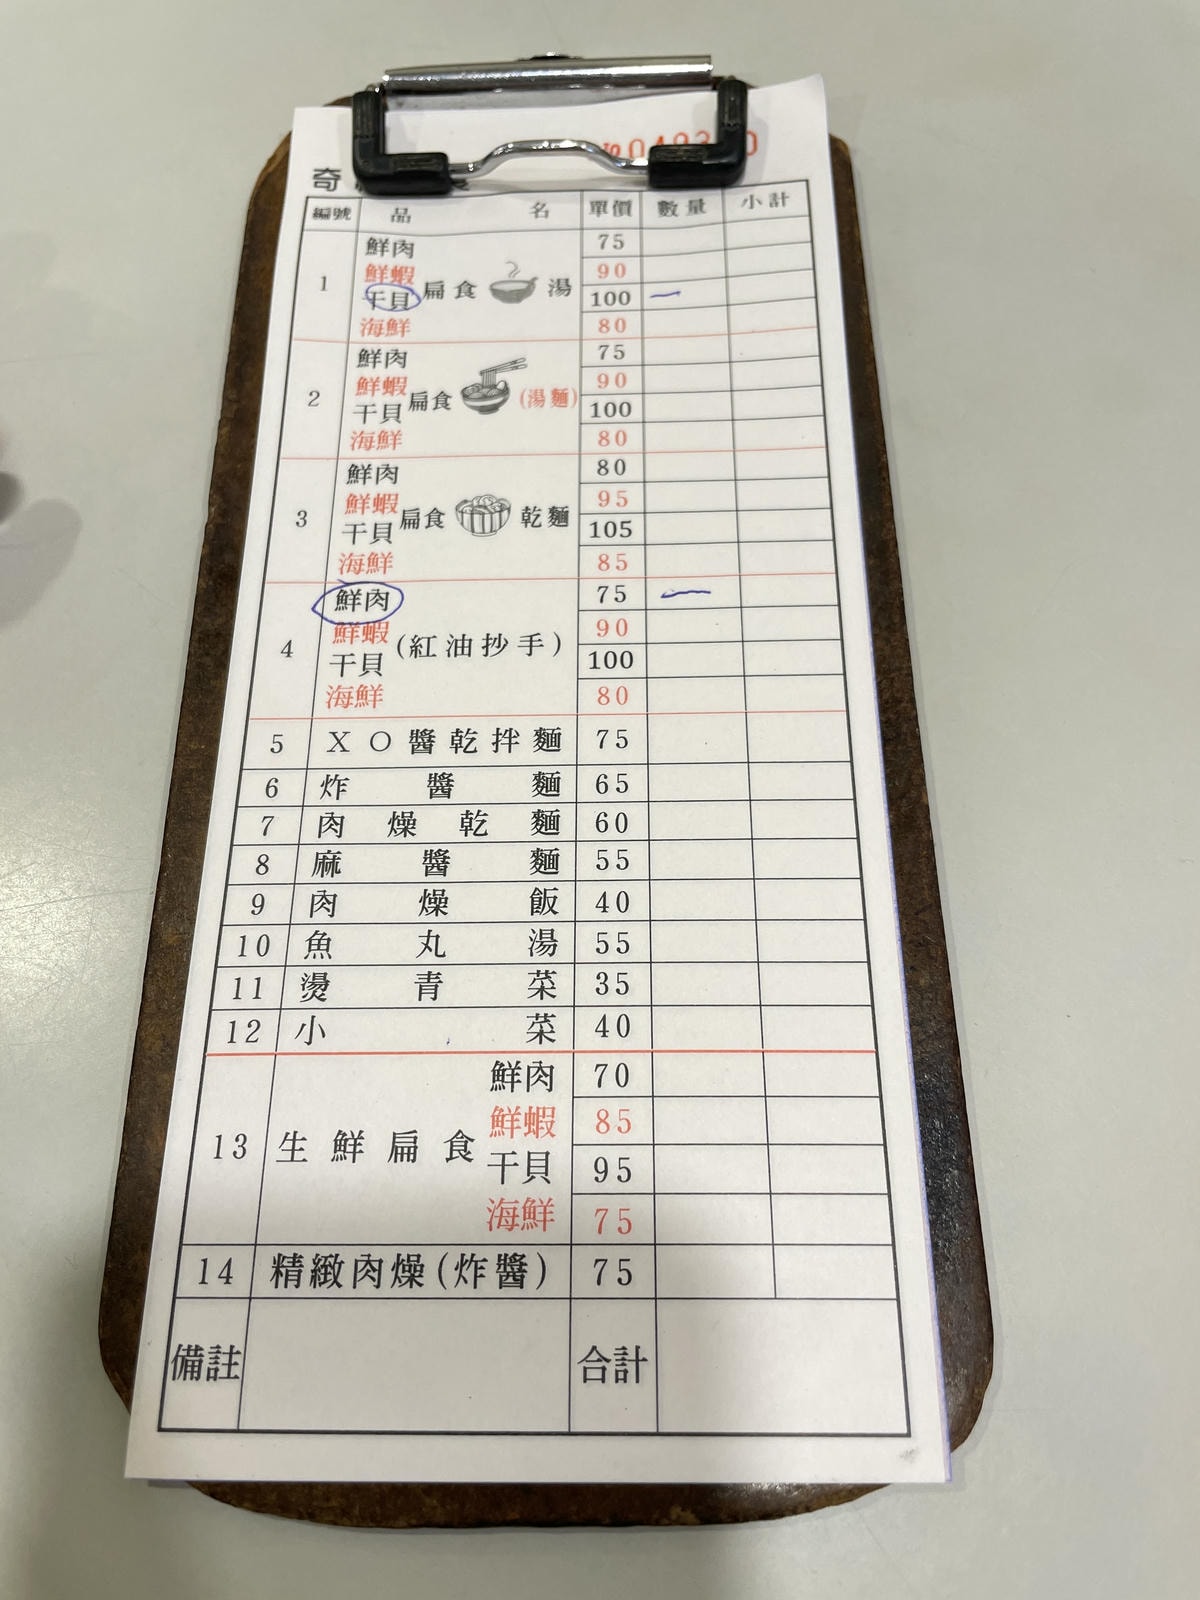 奇
編號 品名 單價 數量 小計
1 鮮肉 75
鮮蝦 90
干貝 扁食 湯 100 一
海鮮 80
2 鮮肉 75
鮮蝦 90
干貝 扁食 (湯麵) 100
海鮮 80
3 鮮肉 80
鮮蝦 95
干貝 扁食 乾麵 105
海鮮 85
4 鮮肉 75 一
鮮蝦 90
干貝 (紅油抄手) 100
海鮮 80
5 XO醬乾拌麵 75
6 炸醬麵 65
7 肉燥乾麵 60
8 麻醬麵 55
9 肉燥飯 40
10 魚丸湯 55
11 燙青菜 35
12 小菜 40
13 生鮮扁食 鮮肉 70
鮮蝦 85
干貝 95
海鮮 75
14 精緻肉燥(炸醬) 75
備註 合計